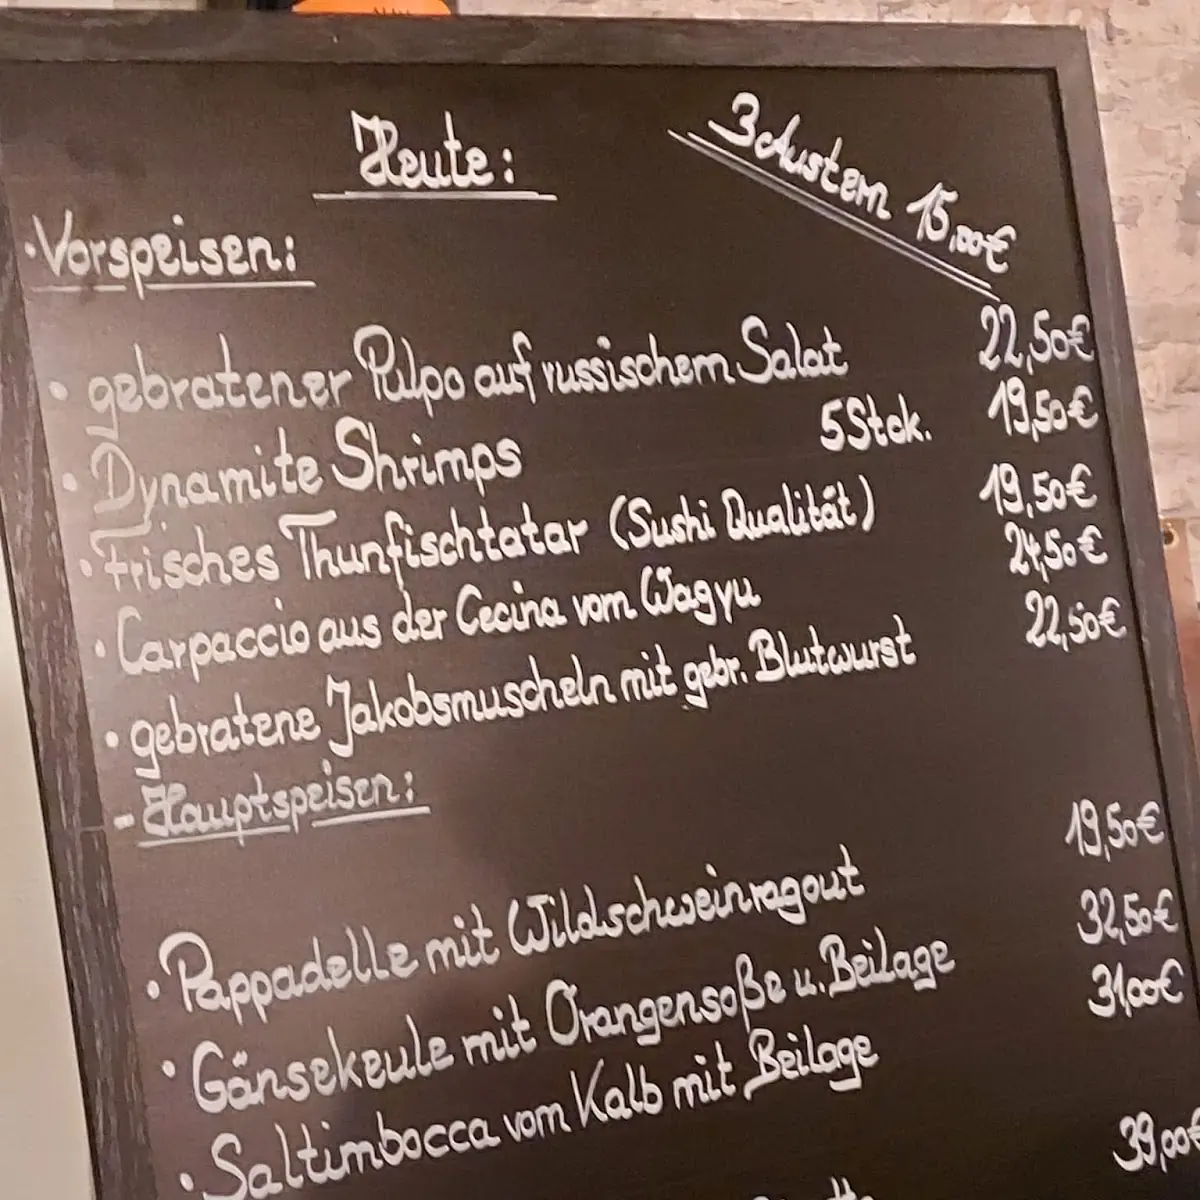 Heute:
3 Austern 15,00€
·Vorspeisen:
· gebratener Pulpo auf russischem Salat 22,50€
· Dynamite Shrimps 5 Stck. 19,50€
· Frisches Thunfischtatar (Sushi Qualität) 19,50€
· Carpaccio aus der Cecina vom Wagyu 24,50€
· gebratene Jakobsmuscheln mit gebr. Blutwurst 22,50€
- Hauptspeisen:
· Pappadelle mit Wildschweinragout 19,50€
· Gänsekeule mit Orangensoße u. Beilage 32,50€
· Saltimbocca vom Kalb mit Beilage 31,00€
39,00€